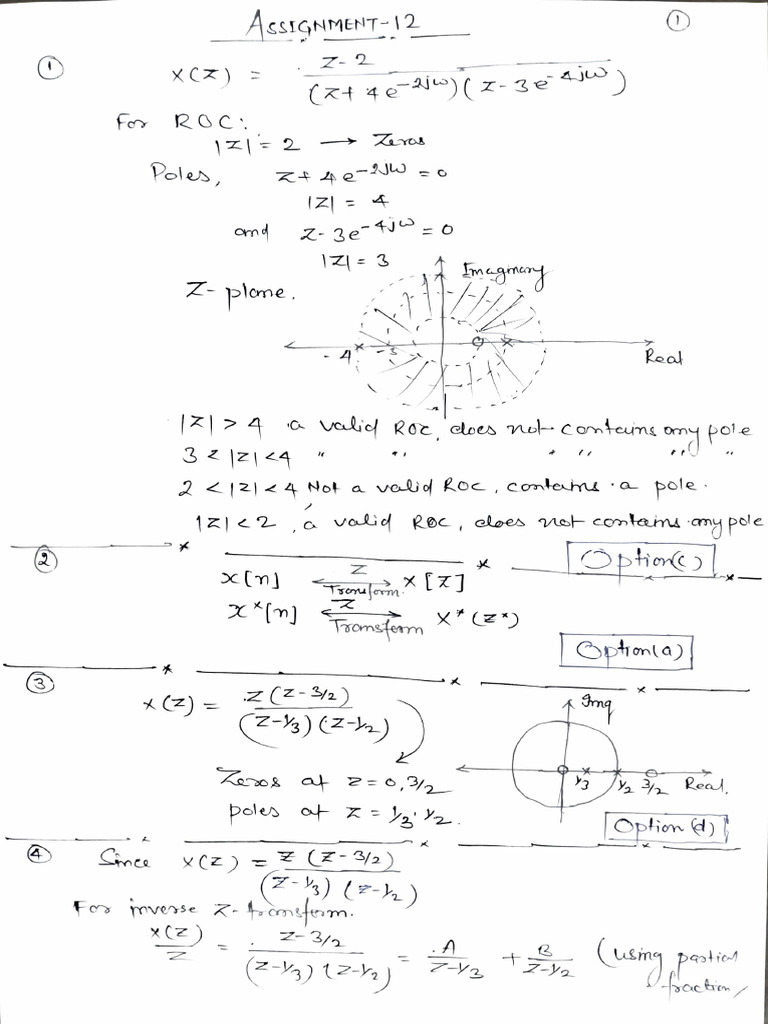 ASSIGNMENT-12
①
①
X(Z) = Z-2 / (Z+4e^-2jω)(Z-3e^-4jω)
For ROC:
|Z| = 2 → Zeros
Poles, Z+4e^-2jω = 0
|Z| = 4
and Z-3e^-4jω = 0
|Z| = 3
Z-plane.
Imaginary
-4 -3
Real
|Z| > 4 a valid ROC, does not contains any pole
3 < |Z| < 4 " " " " " "
2 < |Z| < 4 Not a valid ROC, contains a pole.
|Z| < 2, a valid ROC, does not contains any pole
Option(c)
②
x[n] ⟷ X[Z]
Z
Transform
x*[n] ⟷ X*(Z*)
Z
Transform
Option(a)
③
X(Z) = Z(Z-3/2) / (Z-1/3)(Z-1/2)
Zeros at Z = 0, 3/2
poles at Z = 1/3, 1/2.
Img
1/3 1/2 3/2 Real.
Option(d)
④ Since X(Z) = Z(Z-3/2) / (Z-1/3)(Z-1/2)
For inverse Z-transform.
X(Z)/Z = Z-3/2 / (Z-1/3)(Z-1/2) = A/Z-1/3 + B/Z-1/2 (using partial
fraction)